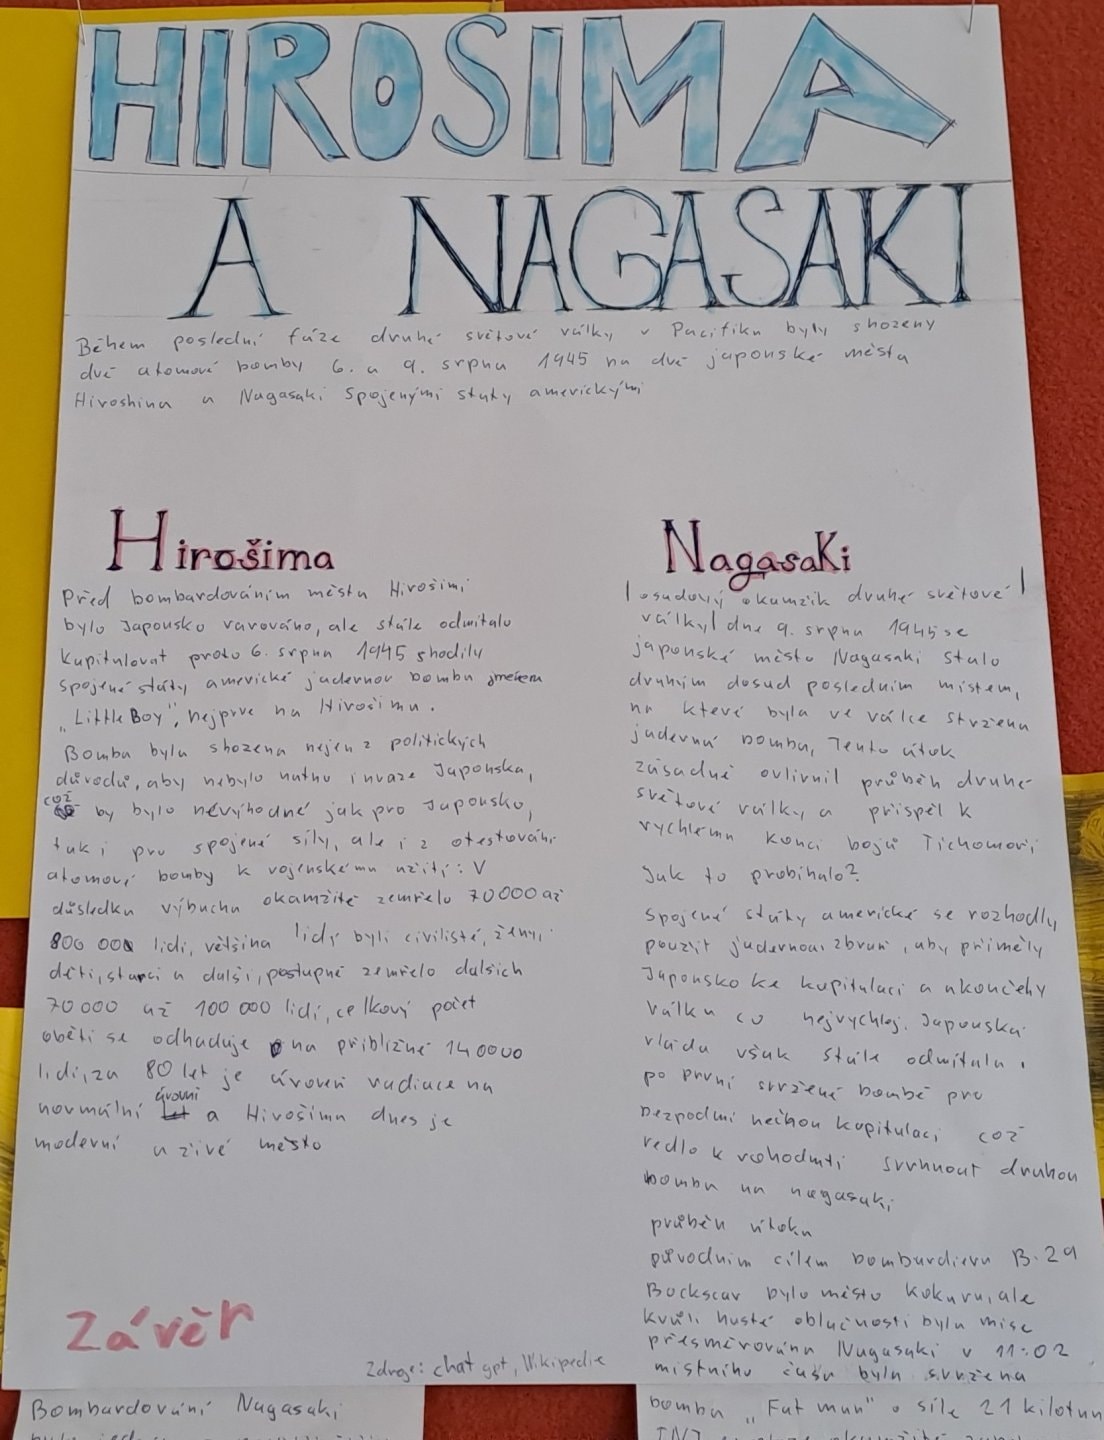 HIROSIMA
A NAGASAKI
Během poslední fáze druhé světové války v Pacifiku byly shozeny
dvě atomové bomby 6. a 9. srpna 1945 na dvě japonské města
Hiroshina a Nagasaki Spojenými státy americkými
Hirošima
Před bombardováním města Hirošimi
bylo Japonsko varováno, ale stále odmítalo
kapitulovat proto 6. srpna 1945 shodily
spojené státy americké jadernou bombu jmérem
„Little Boy“, nejprve na Hirošimu.
Bomba byla shozena nejen z politických
důvodů, aby nebylo nutno invaze Japonska,
což by bylo nevýhodné jak pro Japonsko,
tak i pro spojené síly, ale i z otestování
atomové bomby k vojenskému užití: V
důsledku výbuchu okamžitě zemřelo 70000 až
800 000 lidí, většina lidí byli civilisté, ženy,
děti, starci a další, postupně zemřelo dalsich
70000 až 100 000 lidí, celkový počet
obětí se odhaduje na přibližně 140000
lidí, za 80 let je úroveň radiace na
normální úrovni a Hirošima dnes je
moderní a živé město
Nagasaki
osudový okamžik druhé světové
války dne 9. srpna 1945 se
japonské město Nagasaki stalo
druhým dosud posledním místem,
na které byla ve válce stržena
jaderná bomba, Tento útok
zásadně ovlivnil průběh druhé
světové války a přispěl k
rychlému konci bojů Tichomoří
Jak to probíhalo?
Spojené státy americké se rozhodly
použít jadernou zbraň, aby přiměly
Japonsko ke kapitulaci a ukončely
válku co nejvychlej. Japonská
vláda však stále odmítala.
po první svržené bombě pro
bezpodmínečnou kapitulaci což
vedlo k rohodnutí svrhnout druhou
bombu na nagasaki
průběh útoku
původním cílem bombardieru B-29
Bockscar bylo město kokura, ale
kvůli husté oblačnosti byla mise
přesměrována Nagasaki v 11:02
místního času byla svržena
bomba „Fat man“ o síle 21 kilotun
Závěr
Zdroje: chat gpt, Wikipedie
Bombardování Nagasaki